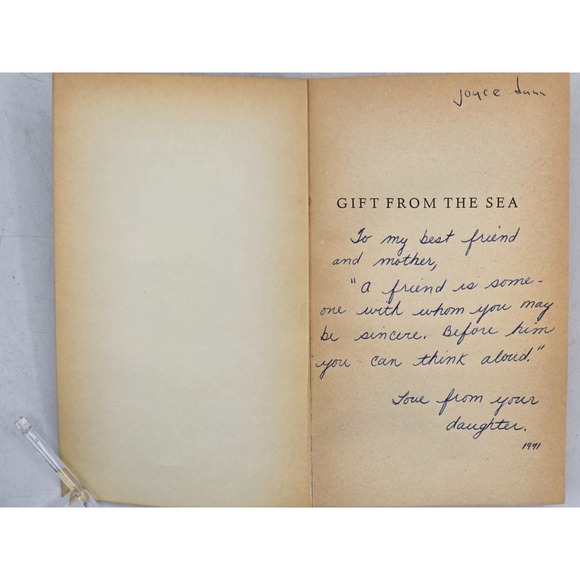 Joyce
GIFT FROM THE SEA
To my best friend
and mother,
"A friend is some-
one with whom you may
be sincere. Before him
you can think aloud."
Love from your
daughter.
1971